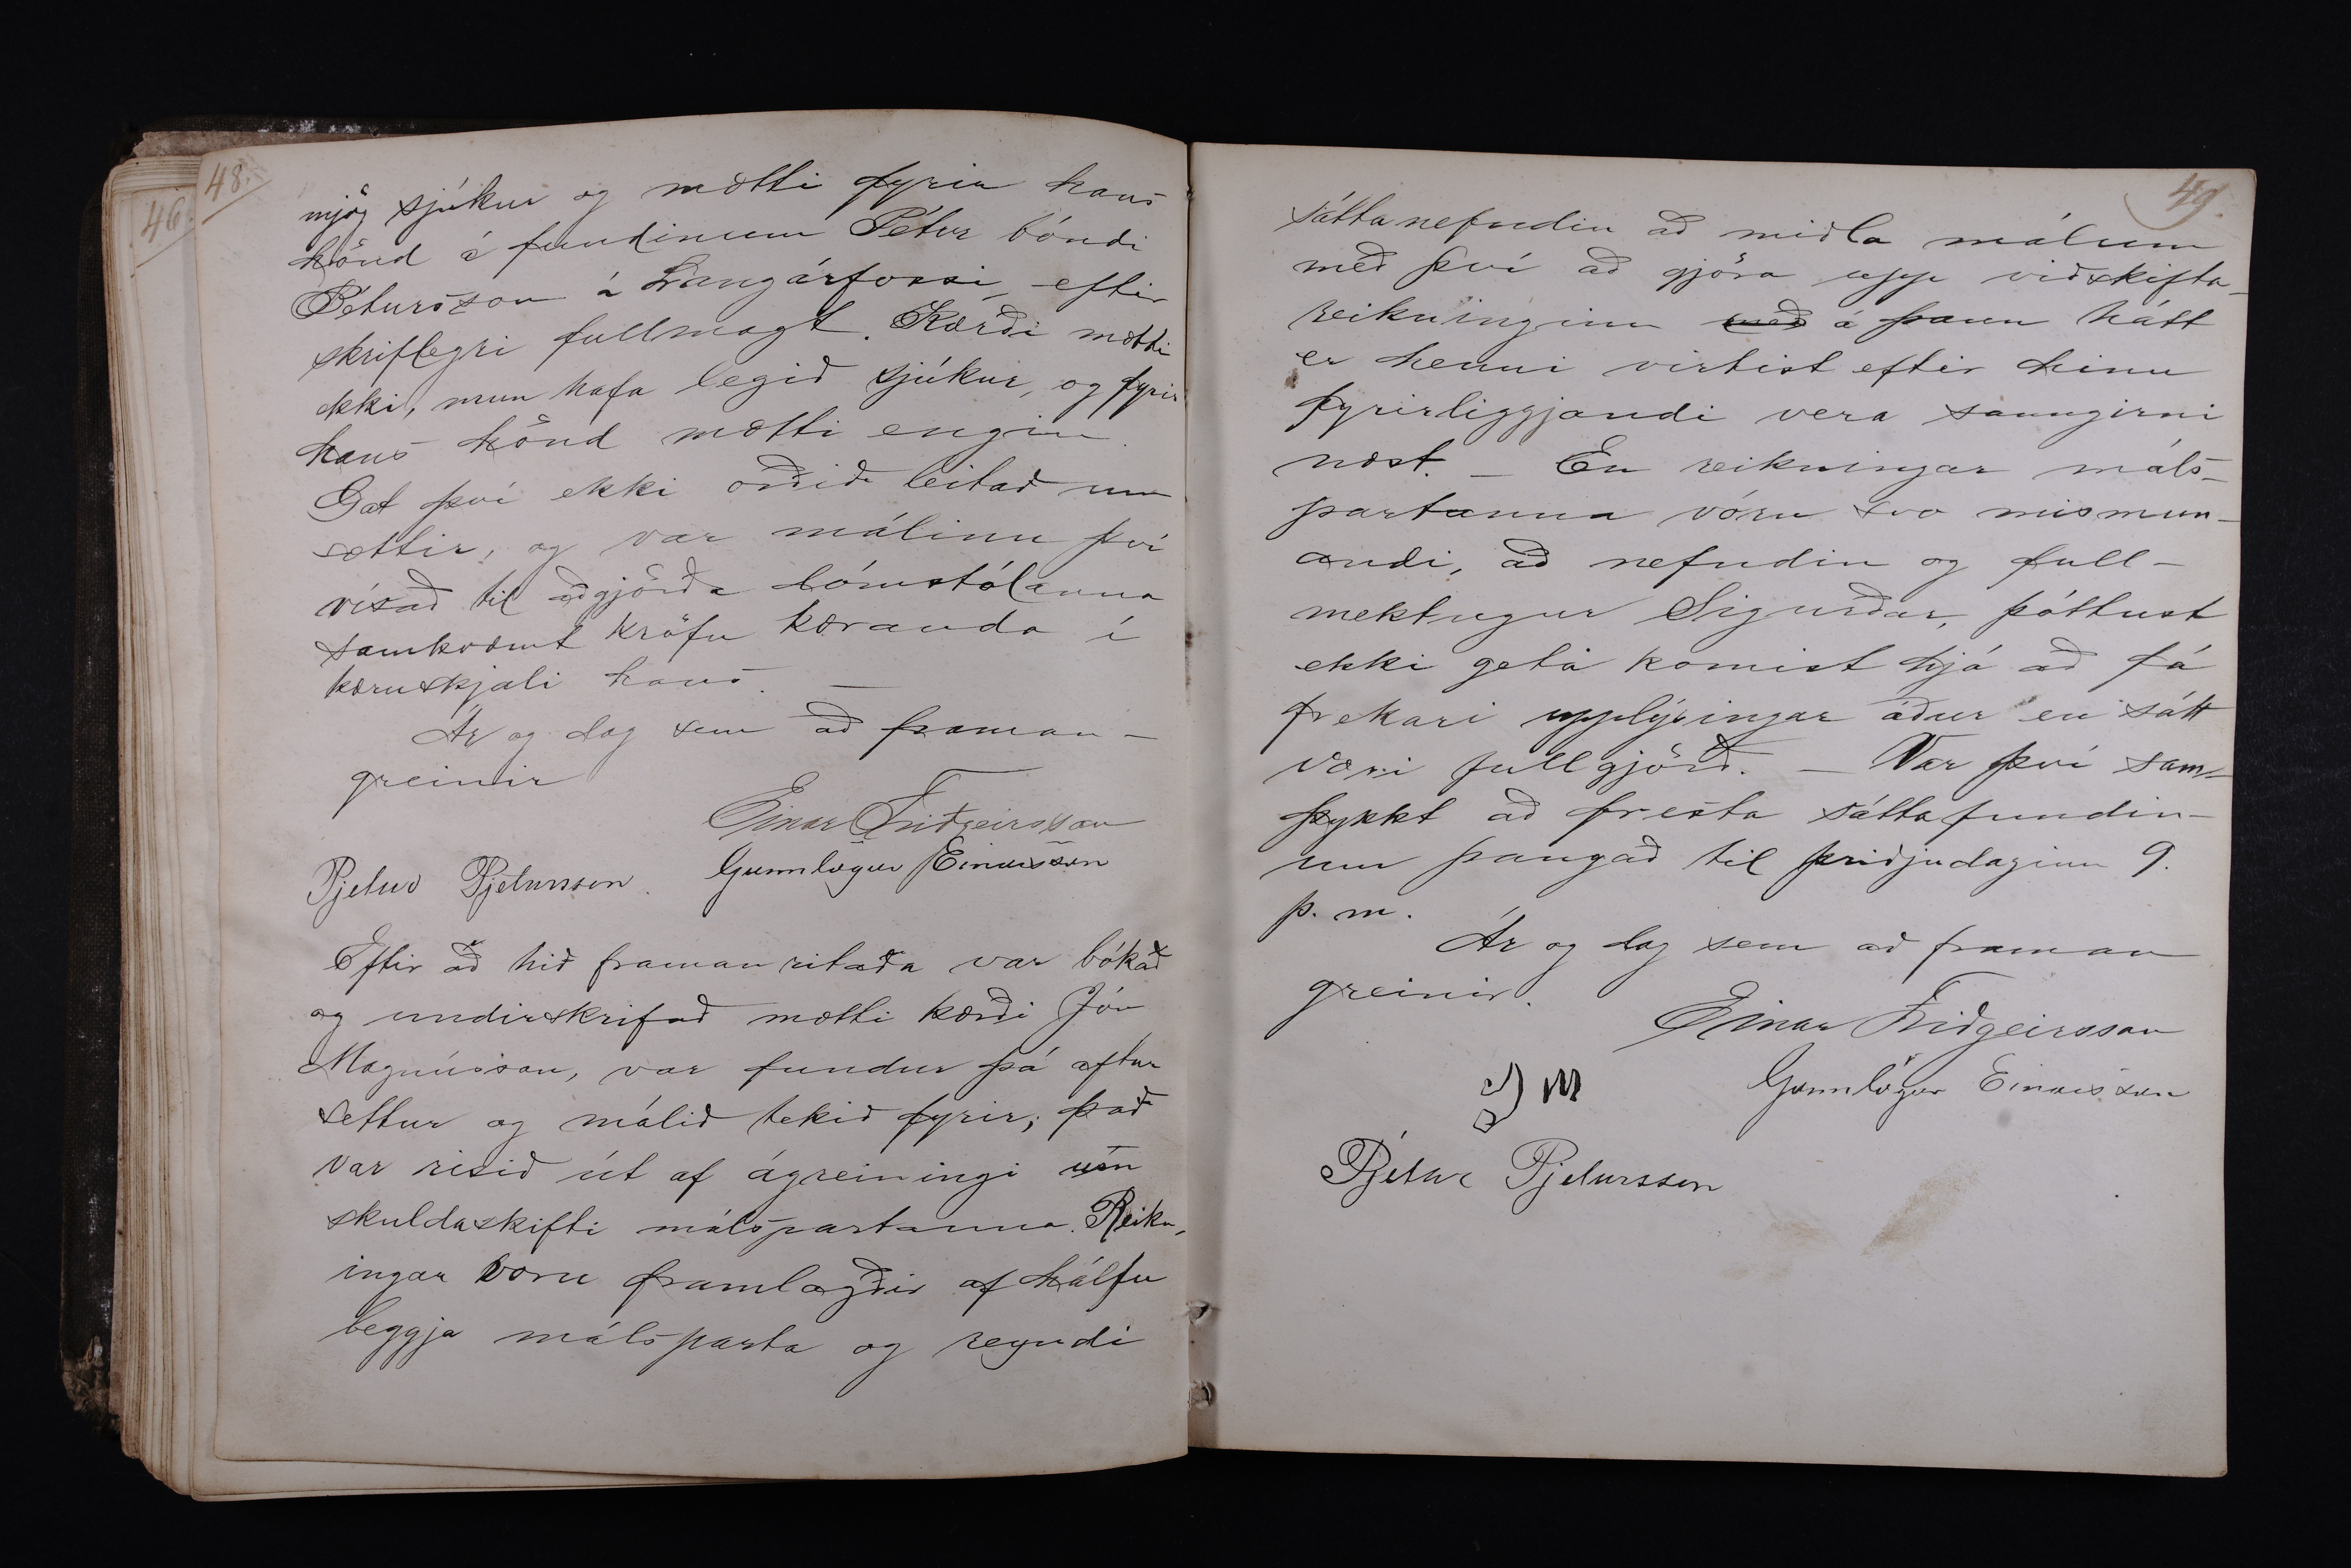 46.
48.
mjög sjúkur og mætti fyrir hans
hönd á fundinum Pétur bóndi
Pétursson á Langárfossi, eftir
skriflegri fullmagt. Kærði mætti
ekki, mun hafa legið sjúkur, og fyrir
hans hönd mætti engin.
Gat því ekki orðið leitað um
sættir, og var málinu því
vísað til aðgjörða dómstólanna
samkvæmt kröfu kæranda í
kæruskjali hans. —
Ár og dag sem að framan-
greinir
Einar Friðgeirsson
Pjetur Pjetursson. Gunnlögur Einarsson
Eftir að hið framanritaða var bókað
og undirskrifað mætti kærði Jón
Magnússon, var fundur þá aftur
settur og málið tekið fyrir; það
var risið út af ágreiningi um
skuldaskifti málspartanna. Reikn-
ingar voru framlagðir af hálfu
beggja málsparta og reyndi
49.
sáttanefndin að miðla málum
með því að gjöra upp viðskifta-
reikninginn með á þann hátt
er henni virtist eftir hinu
fyrirliggjandi vera sanngirni
næst. — En reikningar máls-
partanna vóru svo mismun-
andi, að nefndin og full-
mektugur Sigurðar, þóttust
ekki geta komist hjá að fá
frekari upplýsingar áður en sátt
væri fullgjörð. — Var því sam-
þykkt að fresta sáttafundin-
um þangað til þriðjudaginn 9.
þ. m.
Ár og dag sem að framan
greinir.
Einar Friðgeirsson
J M Gunnlögur Einarsson
Pjetur Pjetursson